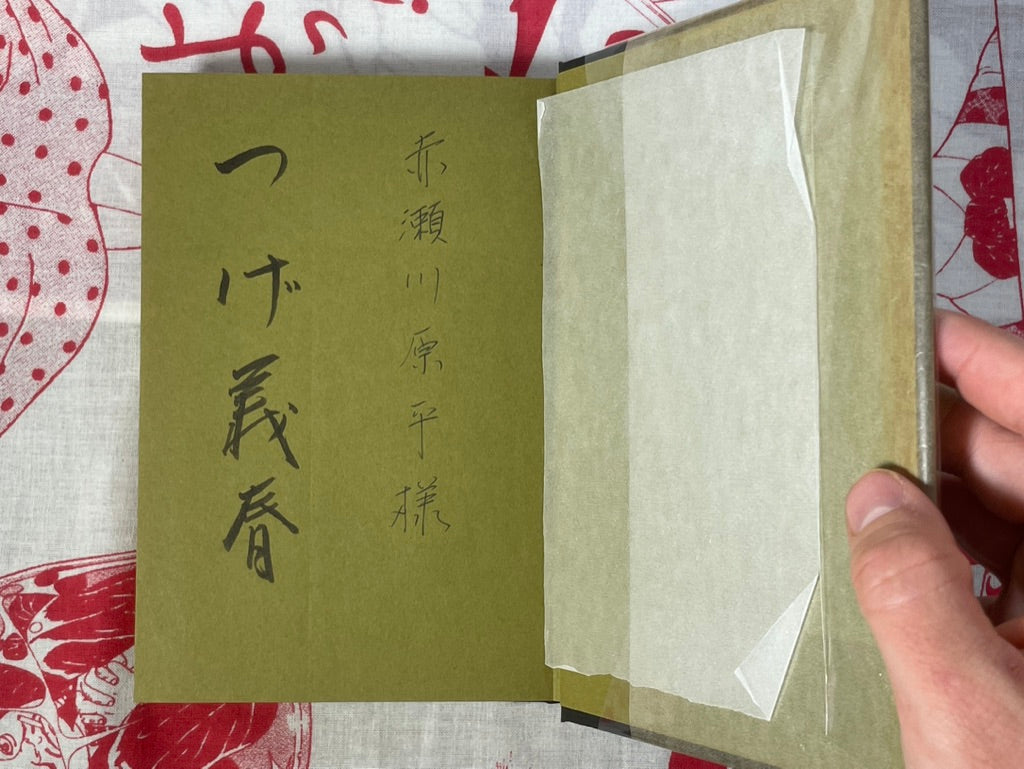 赤瀬川原平様
つげ義春